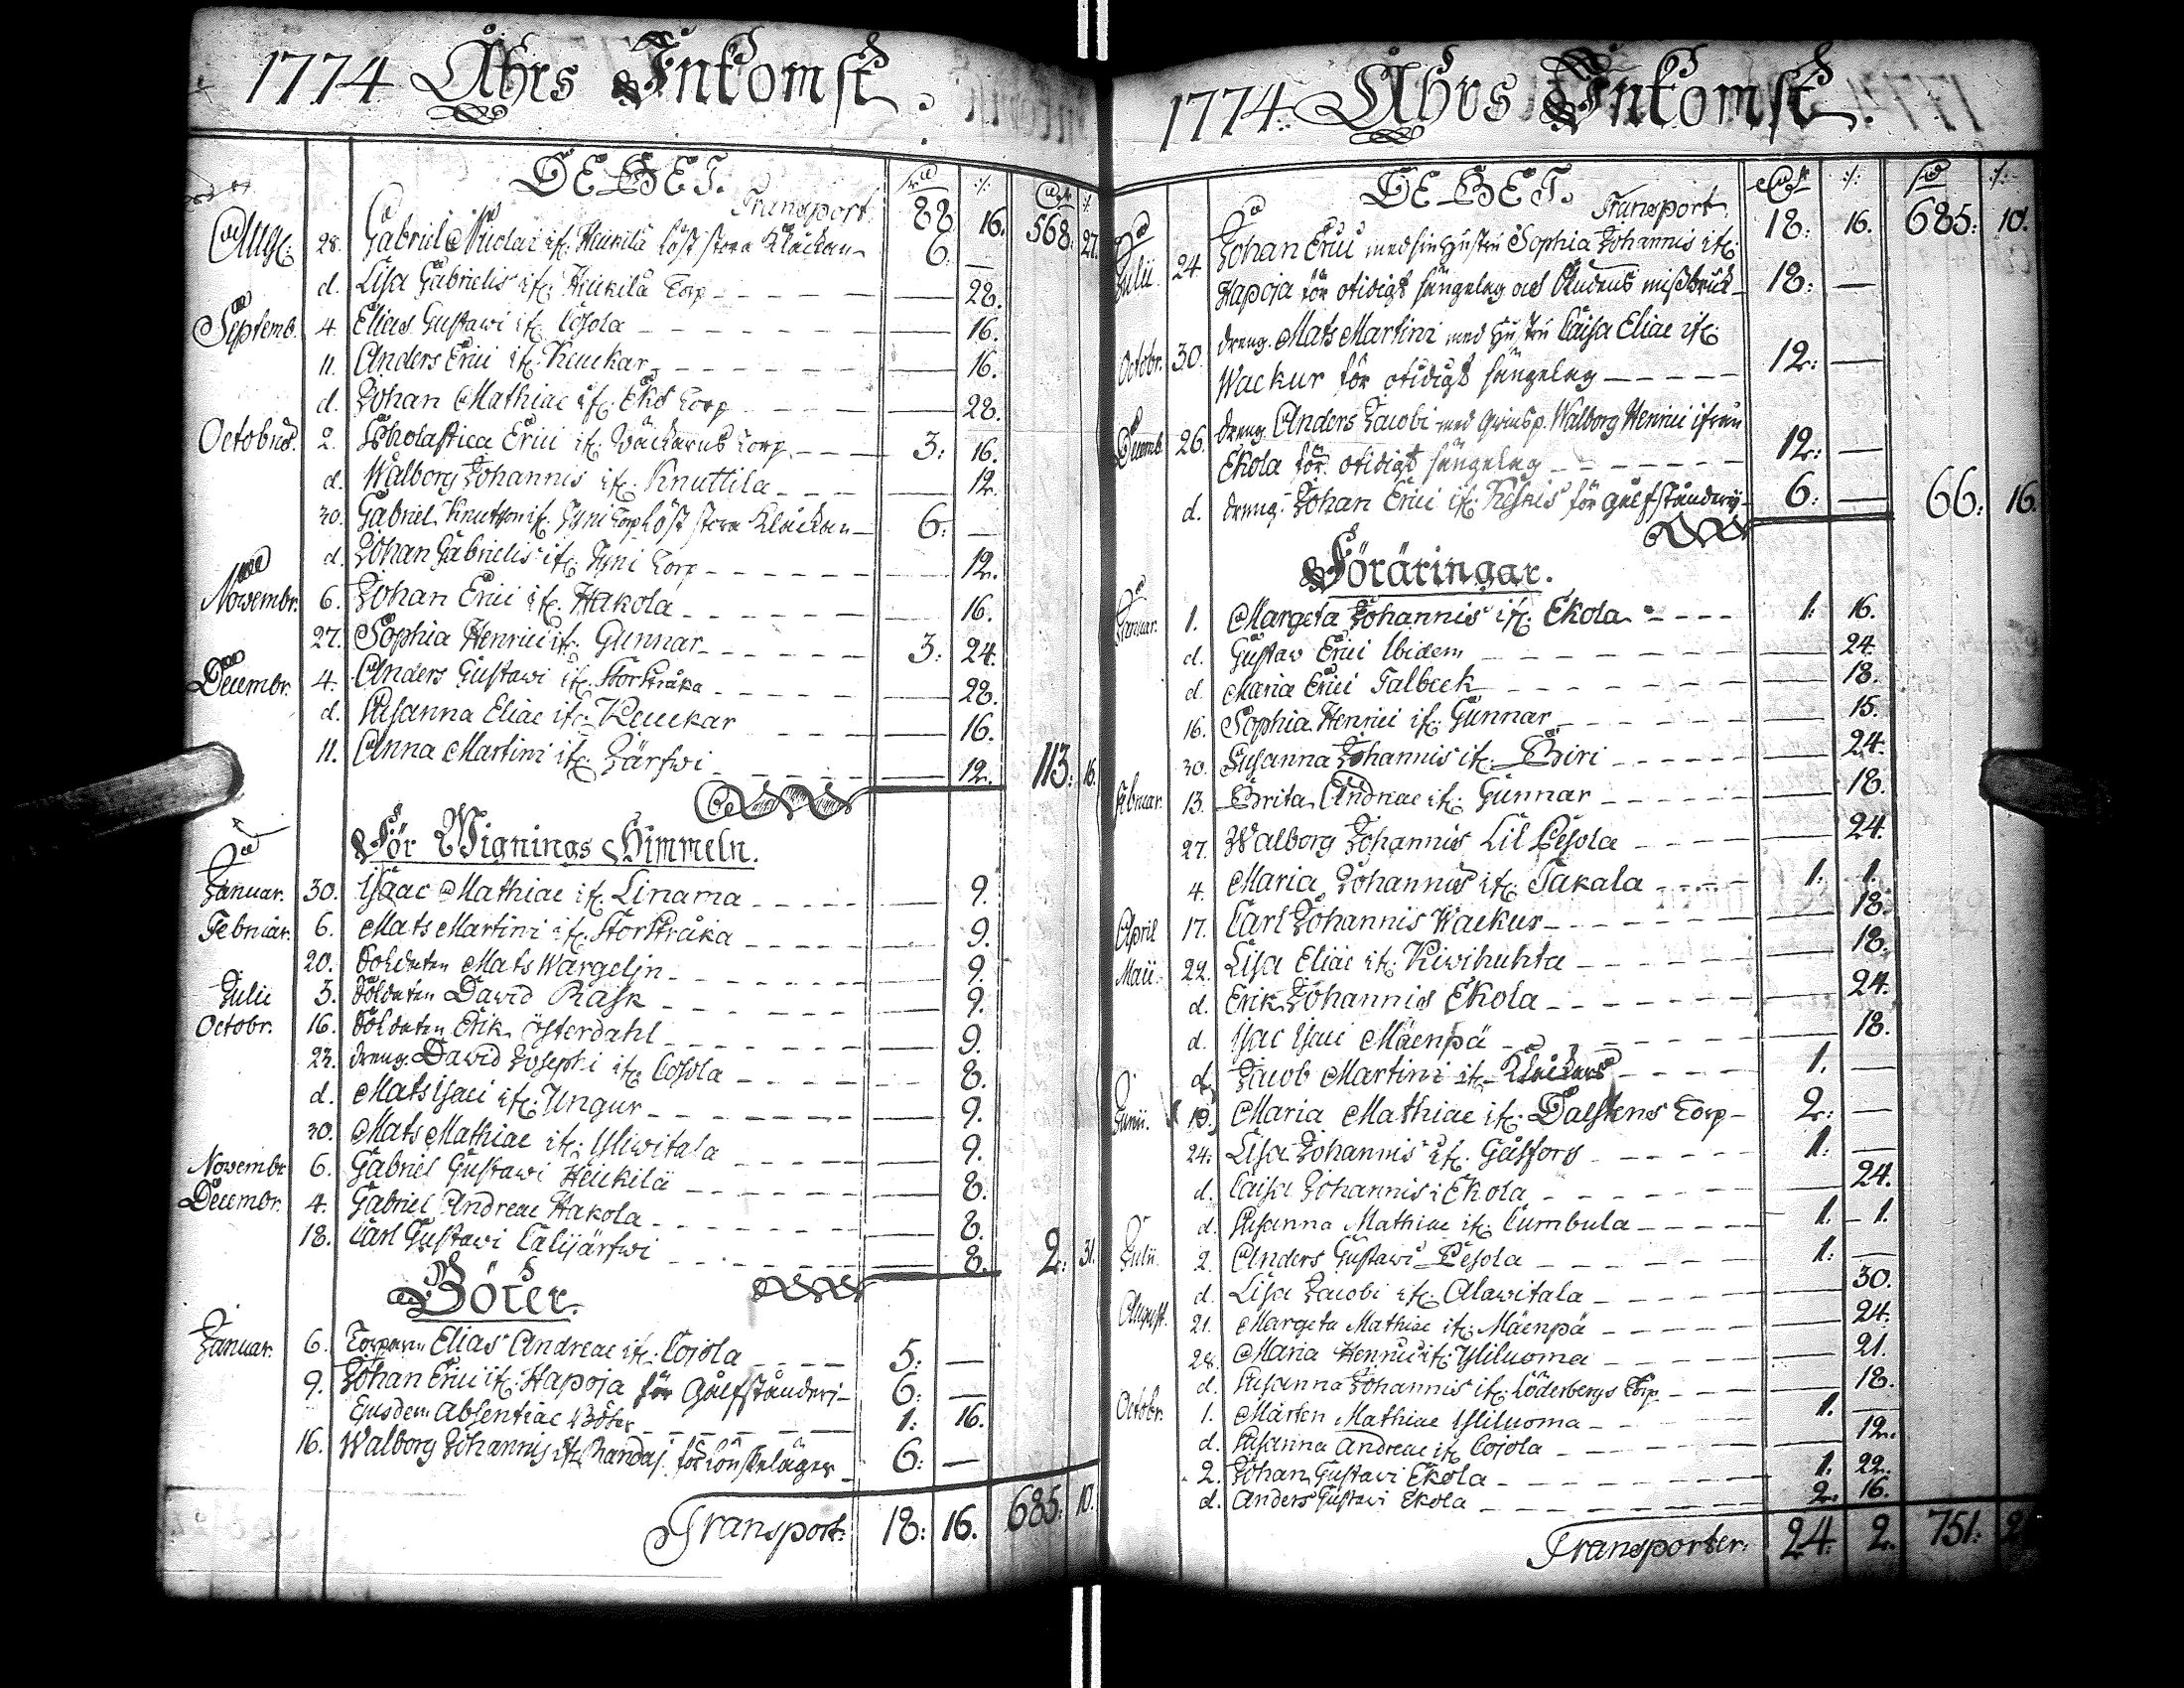 1774 Åhrs Inkomst.
DEBET.
Transport. 88 16. 568: 27.
Aug: 28. Gabriel Nicolai if. Heikilä löst stora Kläckan 6. —
d. Lisa Gabrielis if. Heikilä Torp — 28.
Septemb. 4. Elias Gustavi if. Cojola — 16.
11. Anders Erici if. Keuckar — 16.
d. Johan Mathiae if. Eks Torp — 28.
Octobris. 2. Scholastica Erici if. Wäckarus Torp. 3: 16.
d. Walborg Johannis if. Knuttila — 12.
30. Gabriel Knutsson if. Tyni Torp löst stora Kläckan 6: —
d. Johan Gabrielis if. Tyni Torp — 12.
Novembr. 6. Johan Erici if. Hakola — 16.
27. Sophia Henrici if. Gunnar 3: 24.
Decembr. 4. Anders Gustawi if. Storstråka — 28.
d. Susanna Eliae if. Keuckar — 16.
11. Anna Martini if. Järfwi — 12. 113: 16.
För Wignings Himmeln.
Januar. 30. Isaac Mathiae if. Linama — 9.
Februar. 6. Mats Martini if. Storstråka — 9.
20. Soldaten Mats Wargelin — 9.
Julii 3. Soldaten David Rask — 9.
Octobr. 16. Soldaten Erik Österdahl — 9.
23. dreng. David Josephi if. Cojola — 8.
d. Mats Isaci if. Ungur — 9.
30. Mats Mathiae if. Yliwitala — 9.
Novembr 6. Gabriel Gustawi Heickilä — 8.
Decembr. 4. Gabriel Andreae Hakola — 8.
18. Carl Gustawi Calijärfwi — 8. 2: 31.
Böter.
Januar. 6. Torparen Elias Andreae if. Cojola 5: —
9. Johan Erici if. Hapoja för Gålfstånderi 6: —
Ejusdem Absentiae Böter 1: 16.
16. Walborg Johannis if. för lönskeläger 6: —
Transport: 18: 16. 685: 10.
1774. Åhrs Inkomst.
DEBET.
Transport. 18: 16. 685: 10.
Julii 24. Johan Erici med sin hustru Sophia Johannis if.
Hapoja för otidigt sängelag och missbruk 18: —
Octobr. 30. dreng. Mats Martini med Hustru Caisa Eliae if.
Wackur för otidigt sängelag 12: —
Decemb. 26. dreng Anders Jacobi med Walborg Henrici ifrån
Ekola för otidigt sängelag 12: —
d. dreng. Johan Erici if. för gålfståndery 6: — 66: 16.
Föräringar.
Januar. 1. Margeta Johannis if. Ekola 1: 16.
d. Gustav Erici Ibidem — 24.
d. Maria Erici Talbeck — 18.
16. Sophia Henrici if. Gunnar — 15.
30. Susanna Johannis if. Biri — 24.
Februar. 13. Brita Andreae if. Gunnar — 18.
27. Walborg Johannis Lil Pesola — 24.
4. Maria Johannis if. Takala 1. 1.
April 17. Carl Johannis Wackur — 18.
Maii 22. Lisa Eliae if. Kiwihuhta — 18.
d. Erik Johannis Ekola — 24.
d. Isac Isaci Mäenpä — 18.
d. Jacob Martini if. Kläckars 1. —
Junii. 19. Maria Mathiae if. Dalstens Torp 2: —
24. Lisa Johannis if. Gåsfors 1: —
d. Caisa Johannis i Ekola — 24.
d. Susanna Mathiae if. Cumbula 1. 1.
Julii 2. Anders Gustawi Pesola 1: —
d. Lisa Jacobi if. Alawitala — 30.
August. 21. Margeta Mathiae if. Mäenpä — 24.
28. Maria Henrici if. Yliluoma — 21.
d. Susanna Johannis if. Söderbergs Torp — 18.
Octobr. 1. Mårten Mathiae Yliluoma 1. —
d. Susanna Andreae if. Cojola — 12.
2. Johan Gustavi Ekola 1. 22.
d. Anders Gustavi Ekola 2. 16.
Transporter. 24. 2. 751.